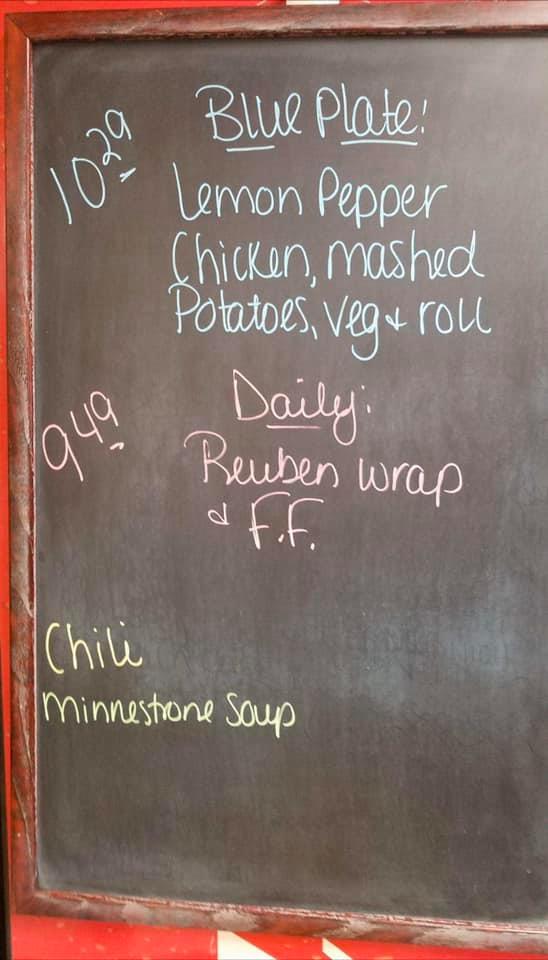 10 29 Blue Plate!
Lemon Pepper
Chicken, mashed
Potatoes, veg & roll
9 49 Daily:
Reuben wrap
& F.F.
Chili
Minnestrone Soup